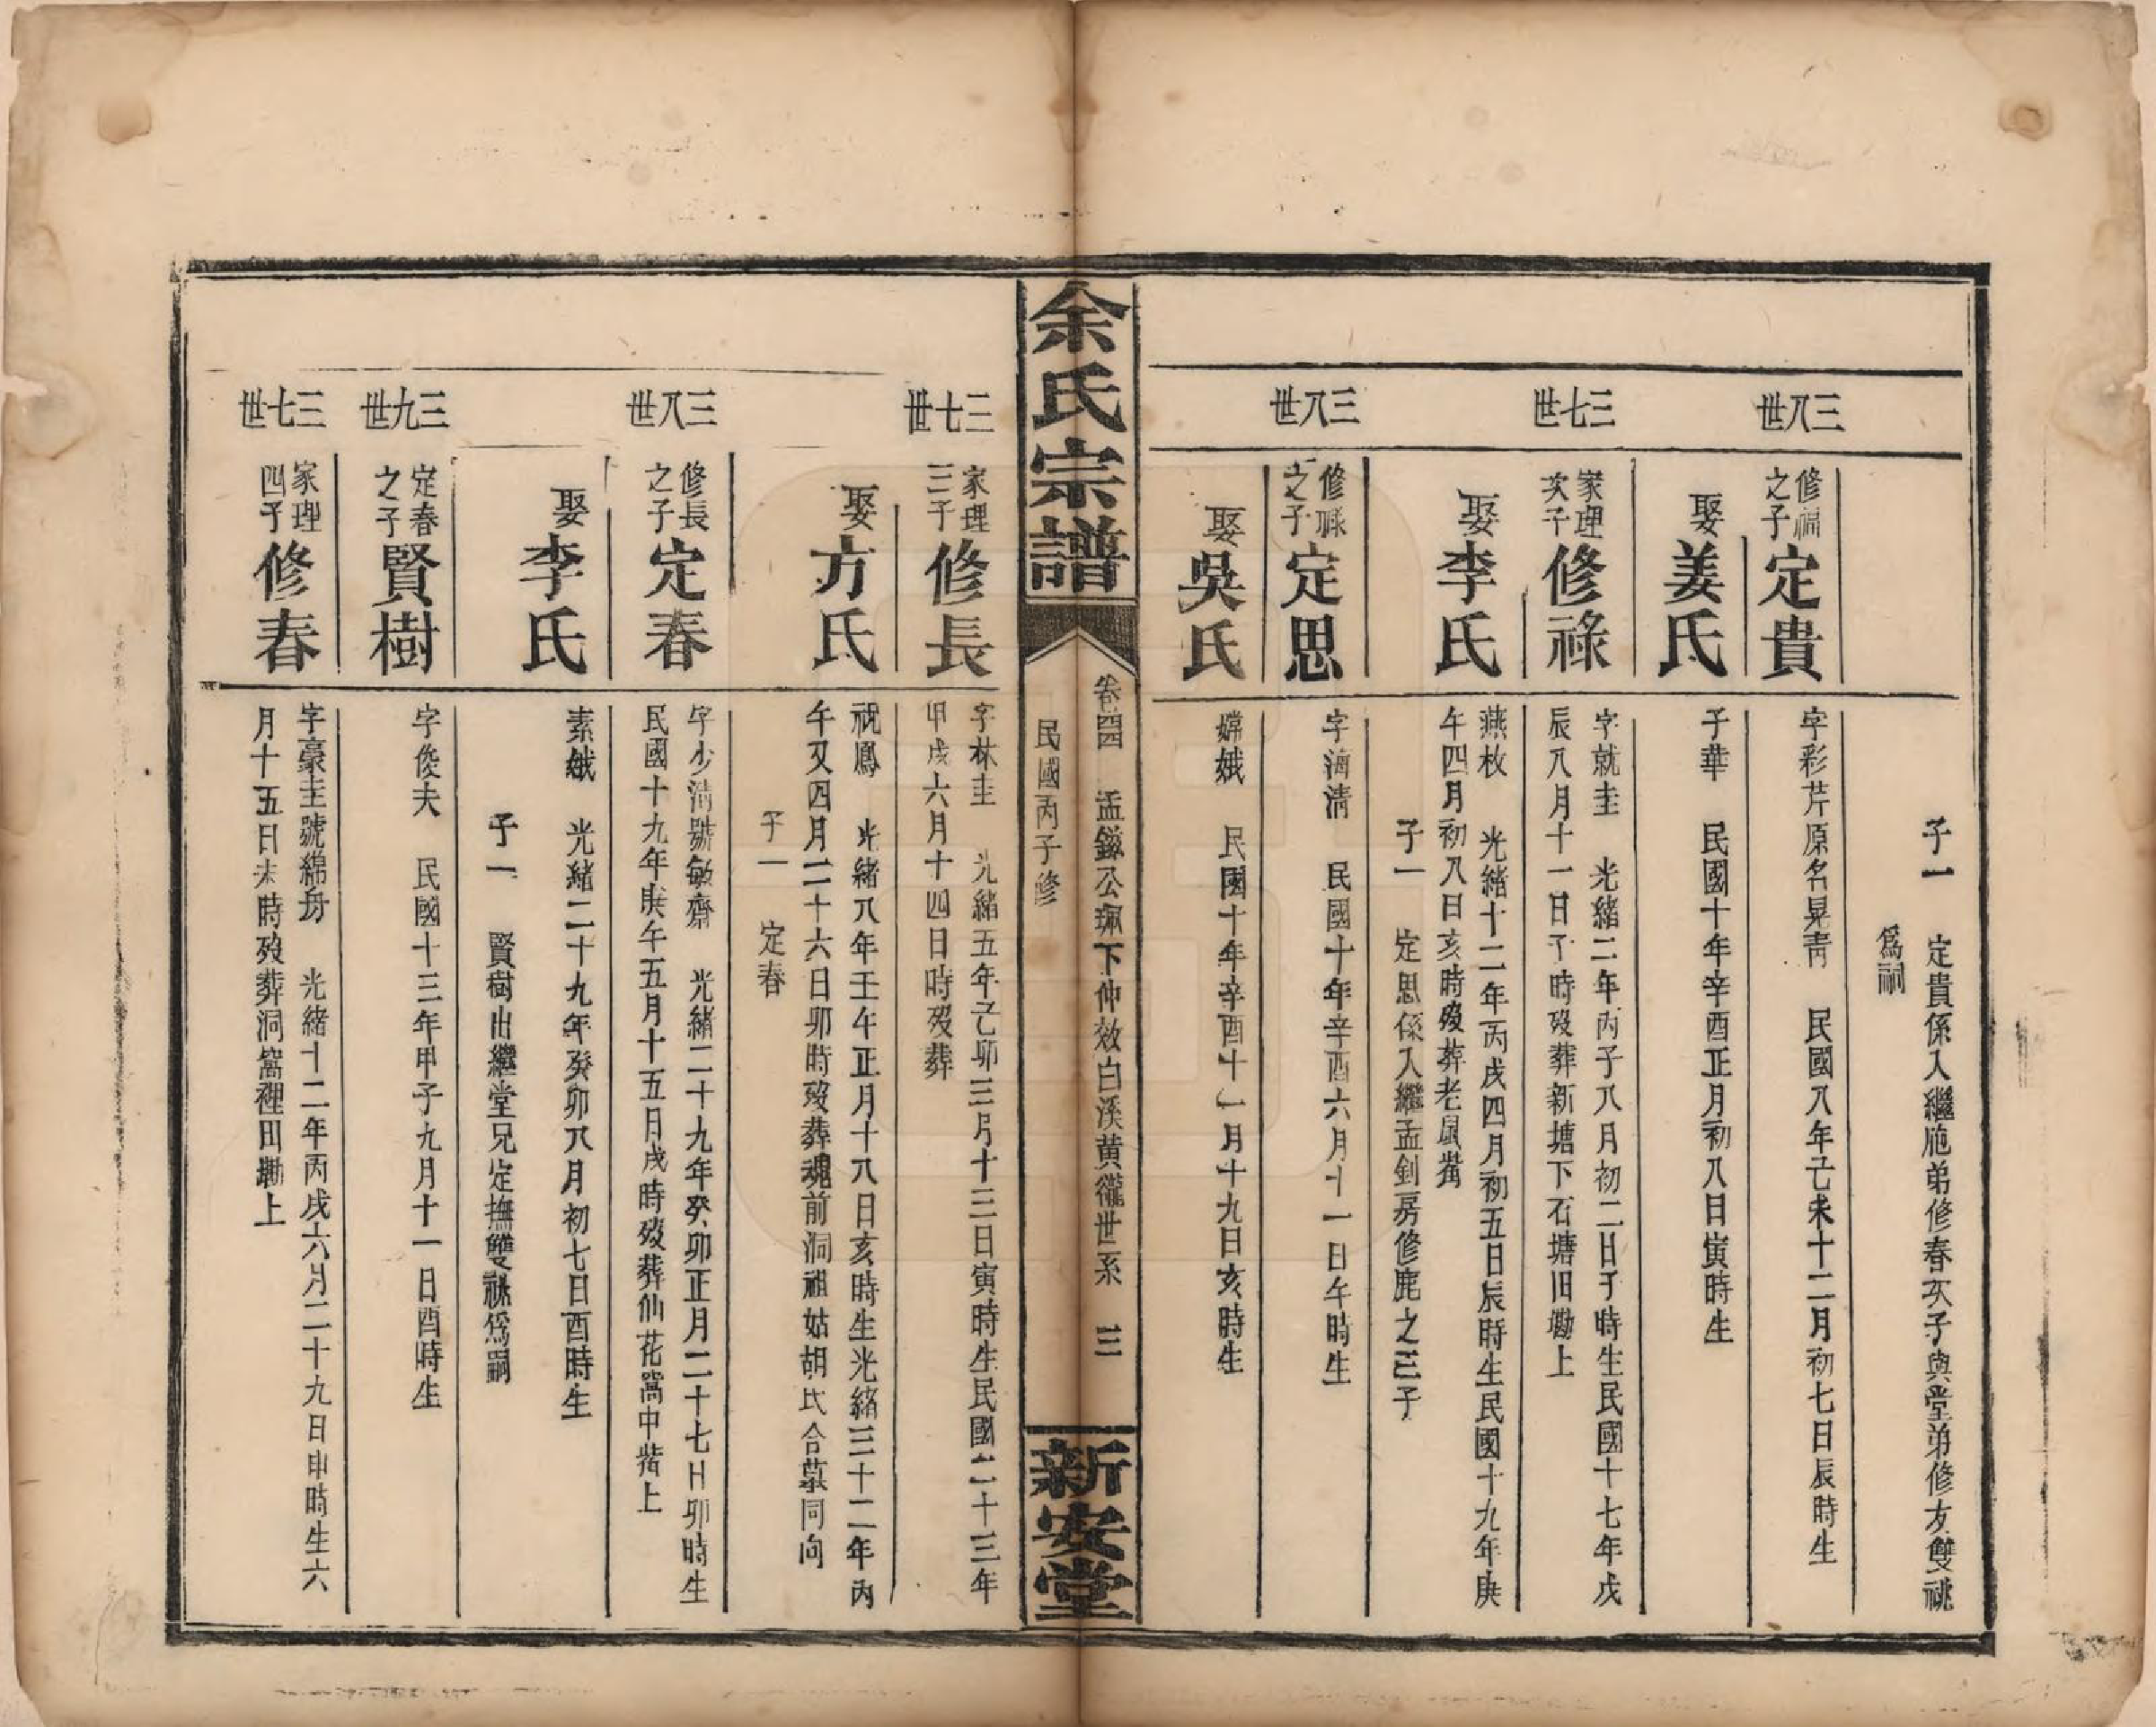 子一　定貴係入繼胞弟修春次子與堂弟修友雙祧
爲嗣
三八世
修祠之子
定貴
字彩芹原名晃青　民國八年己未十二月初七日辰時生
娶姜氏
子華　民國十年辛酉正月初八日寅時生
三七世
家理次子
修祿
字就圭　光緒二年丙子八月初二日子時生民國十七年戊
辰八月十一日子時歿葬新塘下石塘旧墈上
娶李氏
燕枚　光緒十二年丙戌四月初五日辰時生民國十九年庚
午四月初八日亥時歿葬老鼠嘴
子一　定思係入繼孟釗房修鹿之三子
三八世
修祿之子
定思
字海清　民國十年辛酉六月十一日午時生
娶吳氏
嫦娥　民國十年辛酉十一月十九日亥時生
余氏宗譜
卷四　孟鎰公珮下仲效白溪黃𧮾世系　三
民國丙子修
新安堂
三七世
家理三子
修長
字林圭　光緒五年乙卯三月十三日寅時生民國二十三年
甲戌六月十四日時歿葬
娶方氏
祝鳳　光緒八年壬午正月十八日亥時生光緒三十二年丙
午又四月二十六日卯時歿葬魂前洞祖姑胡氏合墓同向
子一　定春
三八世
修長之子
定春
字少清號敏齋　光緒二十九年癸卯正月二十七日卯時生
民國十九年庚午五月十五日戌時歿葬仙花窩中嘴上
娶李氏
素娥　光緒二十九年癸卯八月初七日酉時生
子一　賢樹出繼堂兄定撫雙祧爲嗣
三九世
定春之子
賢樹
字俊夫　民國十三年甲子九月十一日酉時生
三七世
家理四子
修春
字豪圭號綿舟　光緒十二年丙戌六月二十九日申時生六
月十五日未時歿葬洞窩裡田墈上